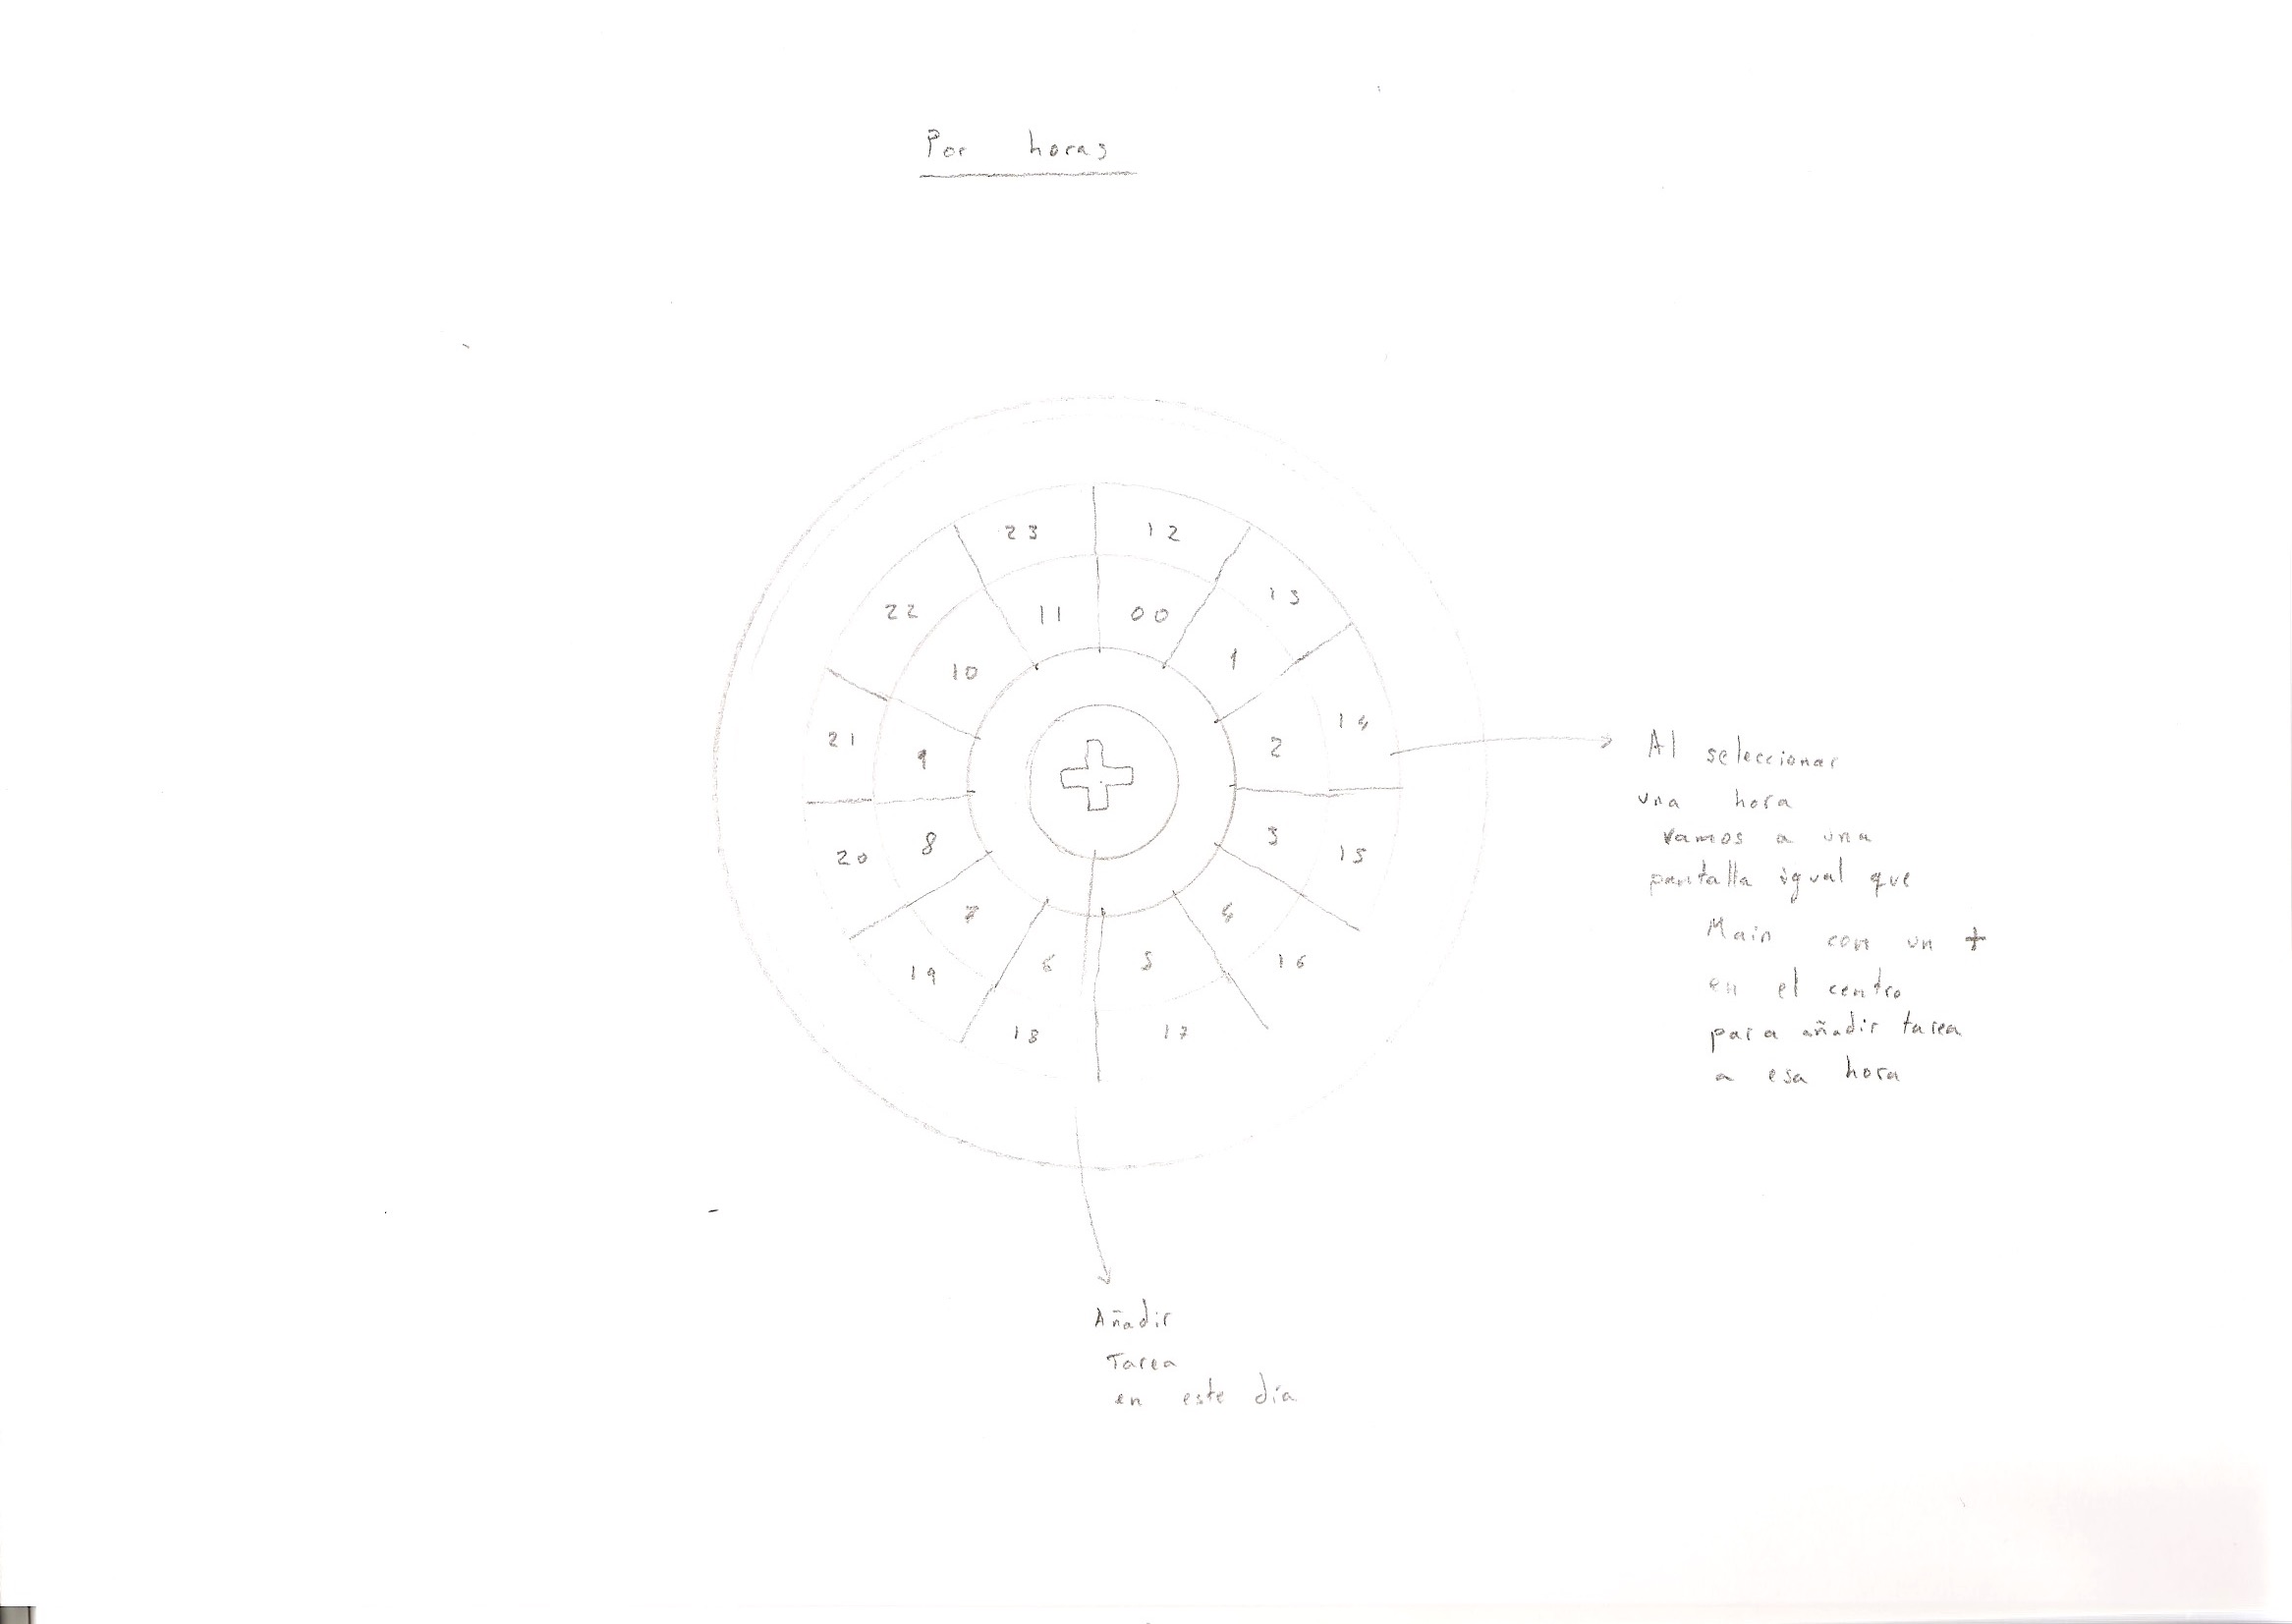 Por horas
23 12
22 13
11 00
10 1
21 14
9 2
20 8 3 15
7 4
19 6 5 16
18 17
Al seleccionar
una hora
vamos a una
pantalla igual que
Main con un +
en el centro
para añadir tarea
a esa hora
Añadir
Tarea
en este día